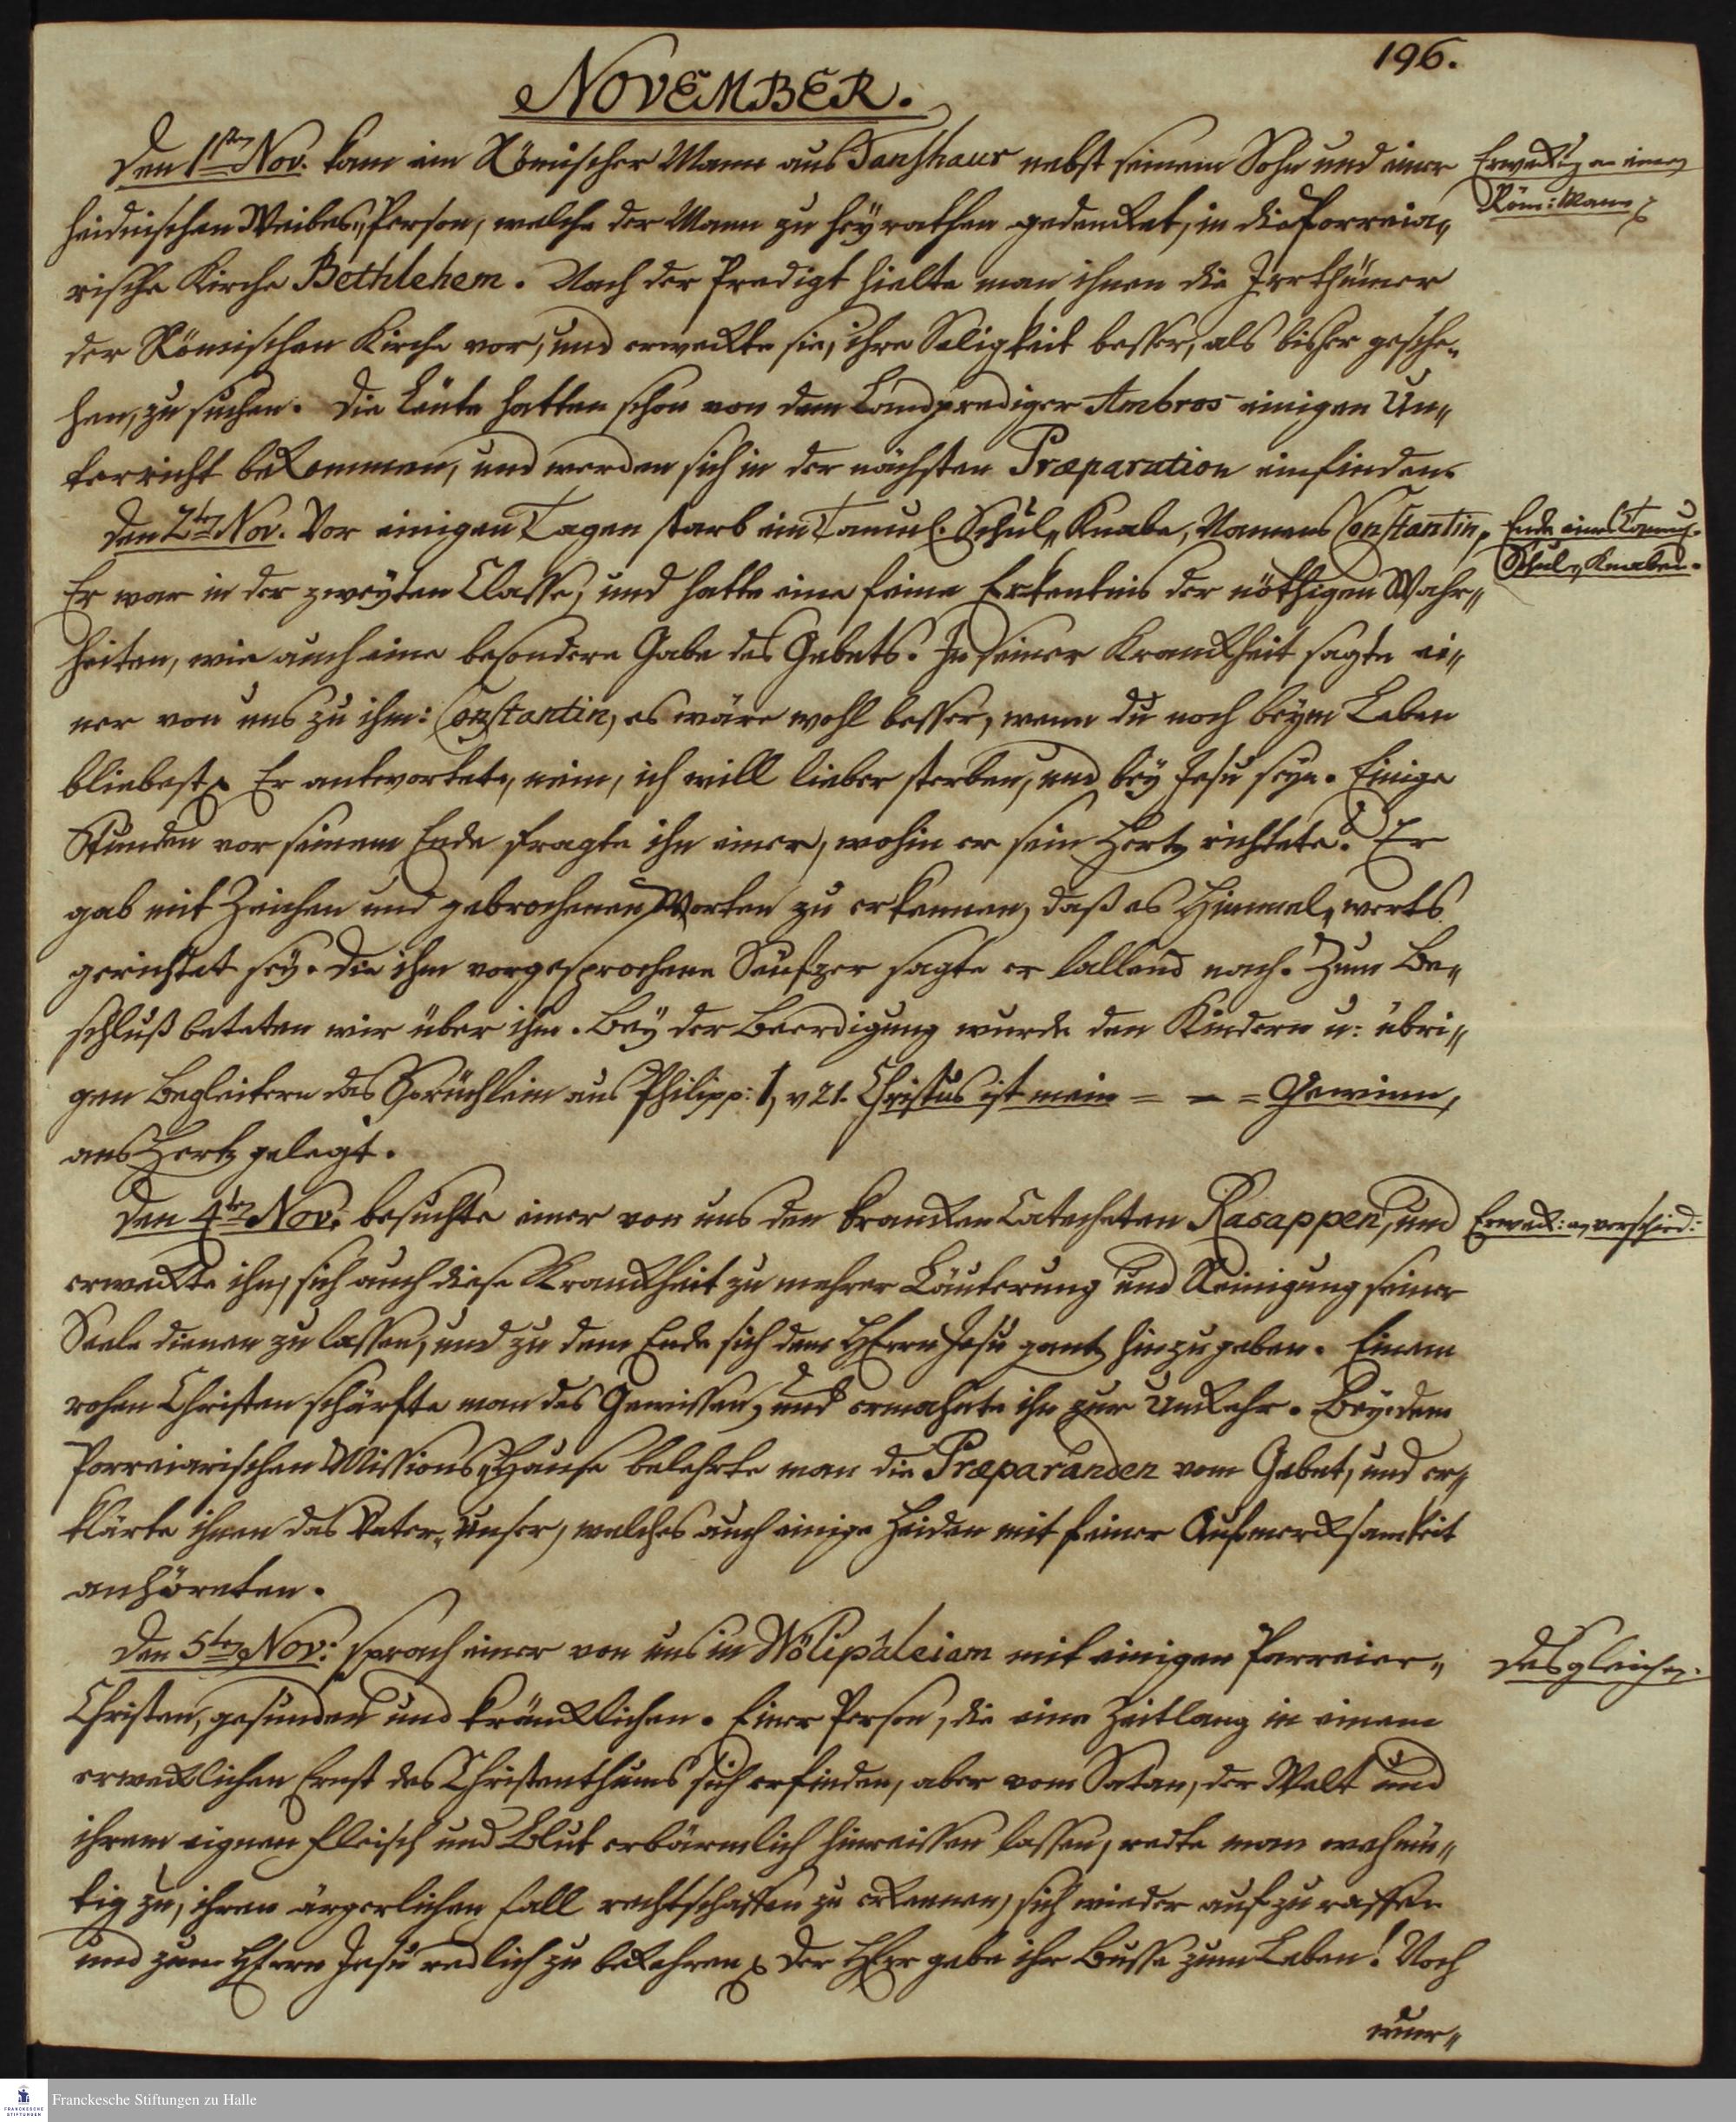 196.
NOVEMBER.
Den 1sten Nov. kam ein Römischer Mann aus Tanshaur nebst seinem Sohn und einer
heidnischen Weibes„Person, welche der Mann zu heyrathen gedencket, in die Porreia„
rische Kirche Bethlehem. Nach der Predigt hielte man ihnen die Irrthümer
der Römischen Kirche vor, und erweckte sie, ihre Seligkeit besser, als bisher gesche„
hen, zu suchen. Die Leute hatten schon von dem Landprediger Ambros einigen Un„
terricht bekommen, und werden sich in der nächsten Præparation einfinden.
Erweckūg an einen
Röm: Mann
Den 2ten Nov. Vor einigen Tagen starb ein Tamul. Schul„Knabe, Namens Constantin,
Er war in der zweyten Classe, und hatte eine feine Erkentnis der nöthigen Wahr„
heiten, wie auch eine besondere Gabe des Gebets. In seiner Kranckheit sagte ei„
ner von uns zu ihm: Constantin, es wäre wohl besser, wenn du noch beym Leben
bliebest. Er antwortete, nein, ich will lieber sterben, und bey Jesu seyn. Einige
Stunden vor seinem Ende fragte ihn einer, wohin er sein Hertz richtete? Er
gab mit Zeichen und gebrochenen Worten zu erkennen, daß es Himmel„werts
gerichtet sey. Die ihm vorgesprochene Seufzer sagte er lallend nach. Zum Be„
schluß beteten wir über ihm. Bey der Beerdigung wurde den Kindern u: übri„
gen Begleitern das Sprüchlein aus Philipp: 1, v 21. Christus ist mein = = = Gewinn,
ans Hertz gelegt.
Ende eines Tamul.
Schul„Knaben.
Den 4ten Nov. besuchte einer von uns den krancken Catecheten Rasappen, und
erweckte ihn, sich auch diese Kranckheit zu mehrer Läuterung und Reinigung seiner
Seele dienen zu lassen, und zu dem Ende sich dem HErrn Jesu gantz hinzugeben. Einem
rohen Christen schärfte man das Gewissen, und ermahnte ihn zur Umkehr. Bey dem
Porreiarischen Missions„Hause belehrte man die Præparanden vom Gebet, und er„
klärte ihnen das Vater„Unser, welches auch einige Heiden mit feiner Aufmercksamkeit
anhöreten.
Erweck: an verschied:
Den 5ten Nov: sprach einer von uns in Wölipâleiam mit einigen Parreier„
Christen, gesunden und kräncklichen. Einer Person, die eine Zeitlang in einem
erwecklichen Ernst des Christenthums sich erfinden, aber vom Satan, der Welt und
ihrem eignen Fleisch und Blut erbärmlich hinreissen lassen, redte man wehmü„
tig zu, ihren ärgerlichen Fall rechtschaffen zu erkennen, sich wieder aufzuraffen
und zum HErrn Jesu redlich zu bekehren. Der HErr gebe ihr Busse zum Leben! Noch
desgleichen.
wur„
Franckesche Stiftungen zu Halle
FRANCKESCHE
STIFTUNGEN